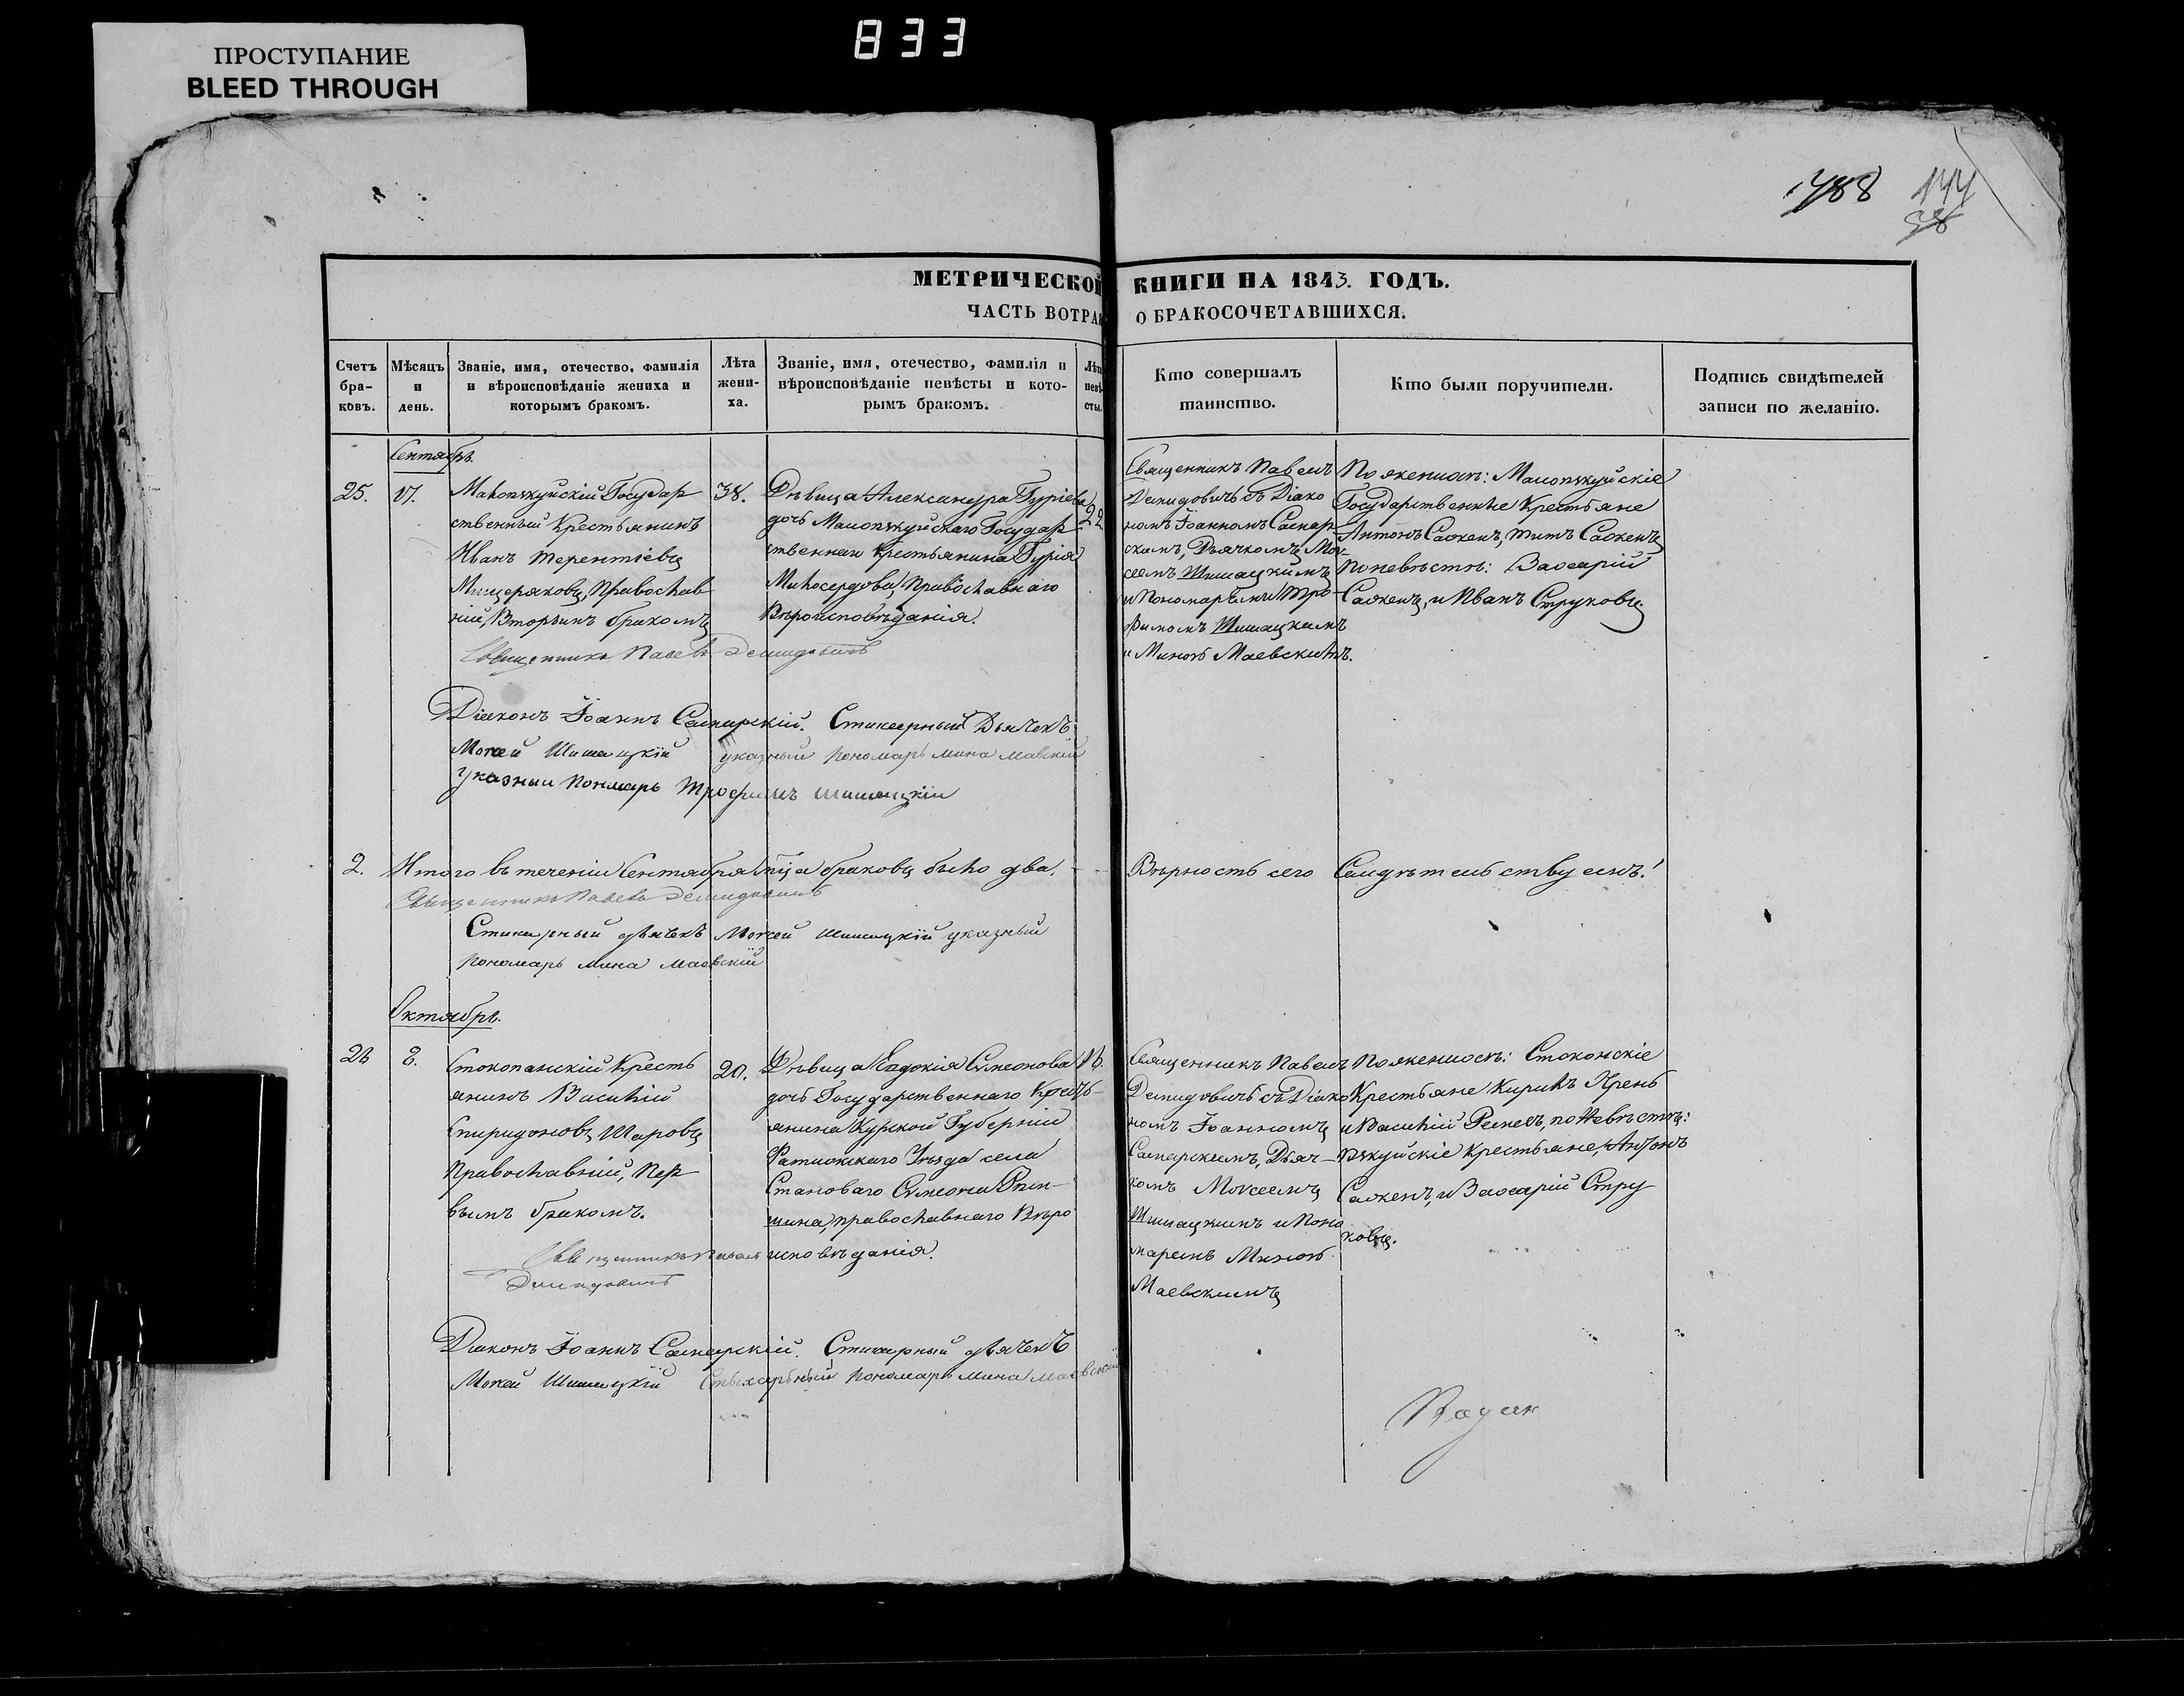 833
ПРОСТУПАНИЕ
BLEED THROUGH
788 144
58
МЕТРИЧЕСКОЙ КНИГИ НА 1843. ГОДЪ.
ЧАСТЬ ВОТРАЯ О БРАКОСОЧЕТАВШИХСЯ.
Счетъ бра-ковъ.
Мѣсяцъ и день.
Званіе, имя, отечество, фамилія
и вѣроисповѣданіе жениха и
которымъ бракомъ.
Лѣта жени-ха.
Званіе, имя, отечество, фамилія и
вѣроисповѣданіе невѣсты и кото-
рымъ бракомъ.
Лѣта невѣ-сты.
Кто совершалъ
таинство.
Кто были поручители.
Подпись свидѣтелей
записи по желанію.
Сентябрь.
25. 17.
Государ
ственный Крестьянинъ
Иванъ Терентіевъ
Мищеряковъ, Православ
ній, Вторымъ бракомъ
38.
Дѣвица Александра Гуріева
дочь Государ
ственнаго Крестьянина Гурія
Милосердова, Православнаго
Вѣроисповѣданія.
22
Священникъ Павелъ
Демидовичъ съ Діако
номъ Іоанномъ Самар
скимъ, Дьячкомъ Мок
сеемъ Шишацкимъ
и Пономарьми Тро-
фимомъ Шишацкимъ
и Миною Маевскимъ.
По женихѣ:
Государственные Крестьяне
Антонъ Сажень, Титъ Сажень
По невѣстѣ: Захарій
Сажень, и Иванъ Струковъ.
Священникъ Павелъ Демидовичъ
Діаконъ Іоаннъ Самарскій. Стихарный Дьячекъ
Мокей Шишацкій указный пономарь мина мавскій
Указный Пономарь Трофимъ Шишацкій
2. Итого въ теченіи Сентября м͞ца браковъ было два.
Вѣрность сего Свидѣтельствуемъ!
Священникъ Павелъ Демидовичъ
Стихарный дьячекъ Мокей Шишацкій указный
пономарь мина маевскій
Октябрь.
26 8.
Кресть
янинъ Василій
Спиридоновъ Шаровъ
Православній, Пер
вымъ бракомъ.
20.
Дѣвица Евдокія Сѵмеонова
дочь Государственнаго Кресть-
янина Курской Губерніи
Уѣзда села
Становаго Сѵмеона
православнаго Вѣро
исповѣданія.
Священникъ Павелъ
Демидовичъ съ Діако
номъ Іоанномъ
Самарскимъ, Дьяч-
комъ Моксеемъ
Шишацкимъ и Поно
маремъ Миною
Маевскимъ
По женихѣ:
Крестьяне Кирилъ
и Василій по Невѣстѣ:
Крестьяне, Антонъ
Сажень, и Захарій Стру
ковъ.
Священникъ Павелъ
Демидовичъ
Діаконъ Іоаннъ Самарскій. Стихарный дьячекъ
Мокей Шишацкій Стыхарьный пономарь мина маевский